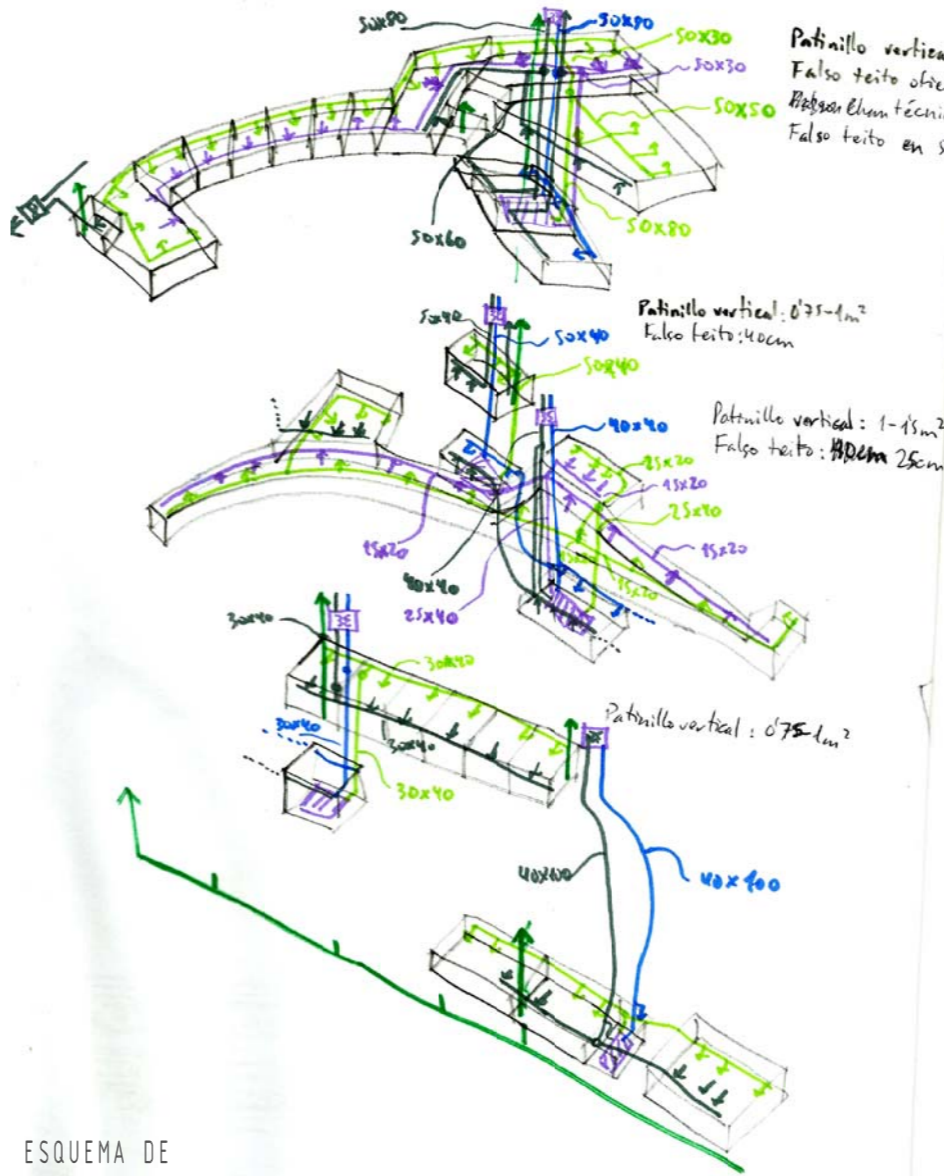 50x80
50x80
50x30
50x30
50x50
50x60
50x80
Patinillo vertical
Falso teito
técni
Falso teito en S
Patinillo vertical: 0'75-1m²
Falso teito: 40cm
50x40
50x40
50x40
Patinillo vertical: 1-1'5m²
Falso teito: 25cm
40x40
25x20
15x20
25x40
15x20
15x20
15x20
15x20
40x40
25x40
30x40
30x40
30x40
30x40
30x40
Patinillo vertical: 0'75-1m²
40x100
40x100
ESQUEMA DE